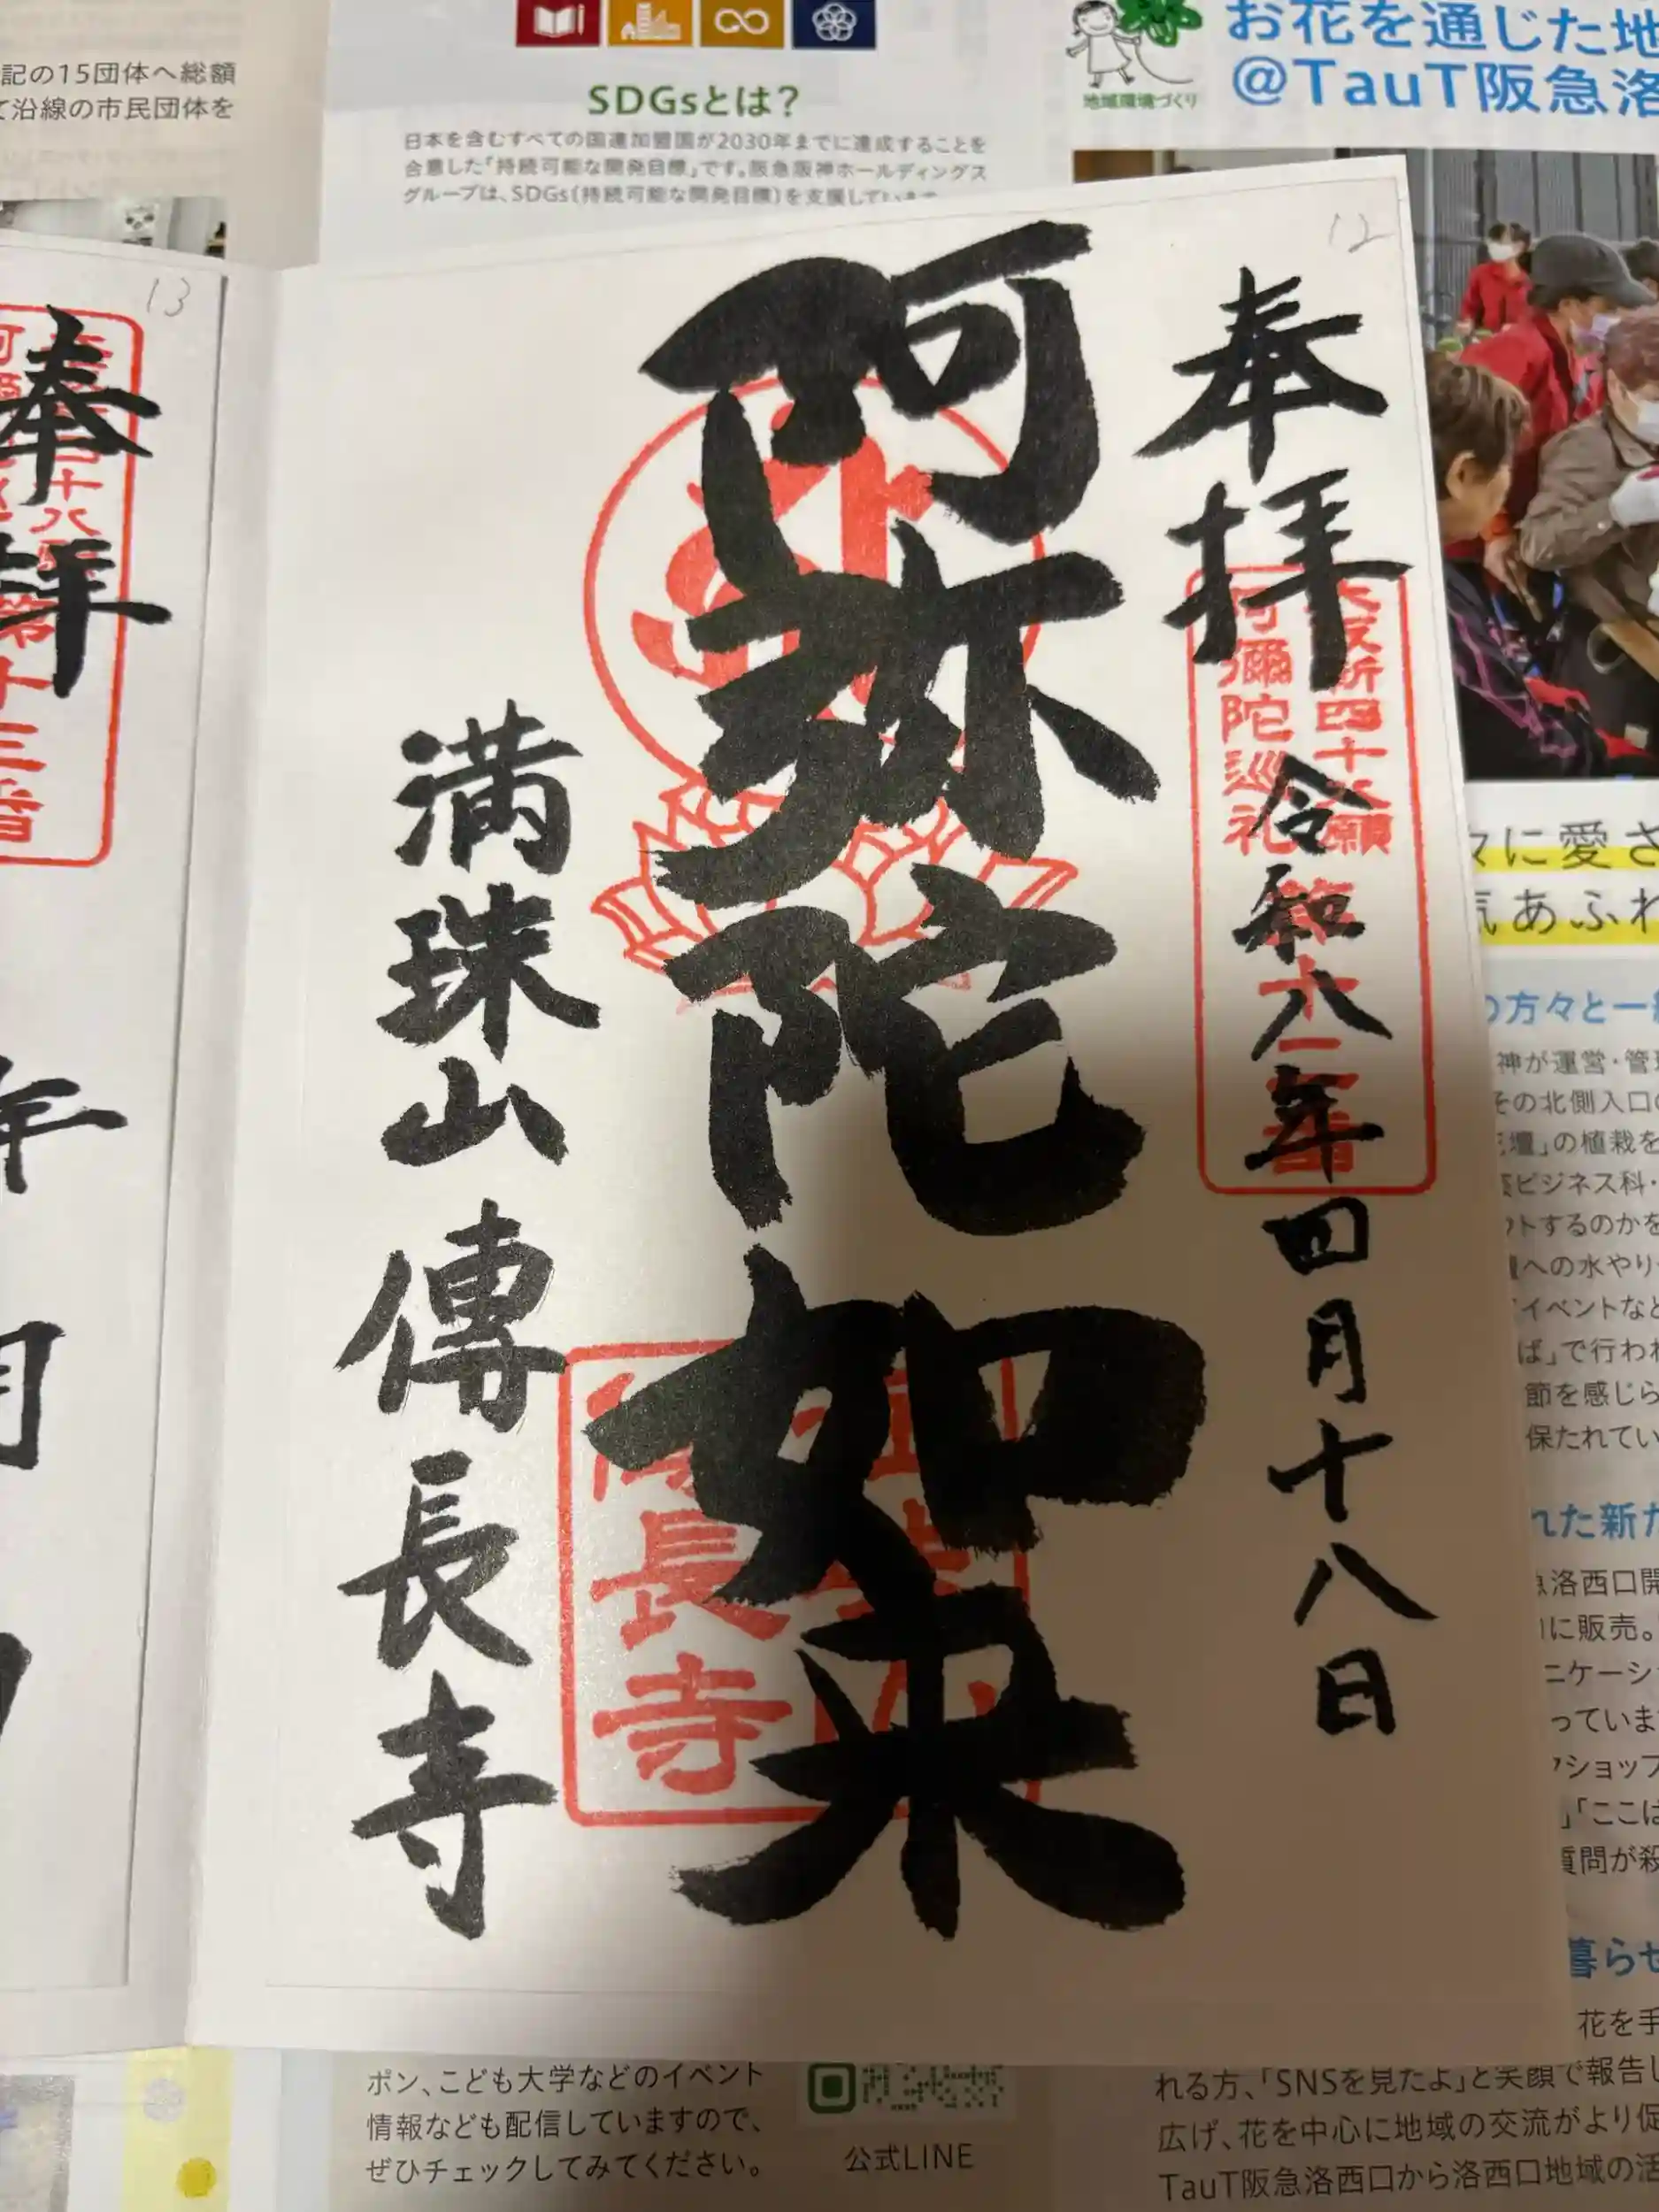 記の15団体へ総額
て沿線の市民団体を
SDGsとは？
日本を含むすべての国連加盟国が2030年までに達成することを
合意した「持続可能な開発目標」です。阪急阪神ホールディングス
グループは、SDGs(持続可能な開発目標)を支援しています
地域環境づくり
お花を通じた地
@TauT阪急洛
12
奉拝
令和八年四月十八日
大阪新四十八願
阿彌陀巡礼
第十二番
阿弥陀如来
満珠山傳長寺
長寺
13
奉拝
十八
第十三番
年
月
々に愛さ
気あふれ
の方々と一緒
神が運営・管理
その北側入口の
花壇」の植栽を
ビジネス科・
トするのかを
への水やり
イベントなど
ば」で行われ
節を感じら
保たれてい
れた新た
急洛西口開
に販売。
ニケーシ
っていま
ショップ
」「ここは
質問が殺
暮らせ
花を手
れる方、「SNSを見たよ」と笑顔で報告し
広げ、花を中心に地域の交流がより促
TauT阪急洛西口から洛西口地域の活
ポン、こども大学などのイベント
情報なども配信していますので、
ぜひチェックしてみてください。
公式LINE